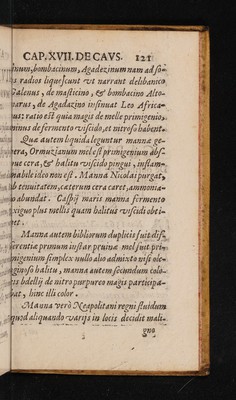 CAP. XVII. DE CAVS. 121
inum, bombacinum, Agadezinum nam ad so-
is radios liquescunt vt narrant delibanico
Galenus, de masticino, & bombacino Alto-
marus, de Agadazino insinuat Leo Africa-
nus: ratio est quia magis de melle primigenio,
minus de fermento viscido, et nitroso habent.
Quæ autem liquida leguntur mannæ ge-
nera, Ormuzianum mel est primigenium abs-
que cera, & halitu viscido pingui, inflam-
mabile ideo non est. Manna Nicolai purgat,
ob tenuitatem, cæterum cera caret, ammonia-
o abundat. Caspij maris manna fermento
exiguo plus mellis quam halitus viscidi obti-
net.
Manna autem bibliorum duplicis fuit dif-
ferentiæ primum instar pruinæ mel fuit pri-
migenium simplex nullo alio admixto nisi ole-
ginoso halitu, manna autem secundum colo-
ris bdellij de nitro purpureo magis participa-
bat, hinc illi color.
Manna verò Neapolitani regni fluidum
quod aliquando varijs in locis decidit mali-
gna